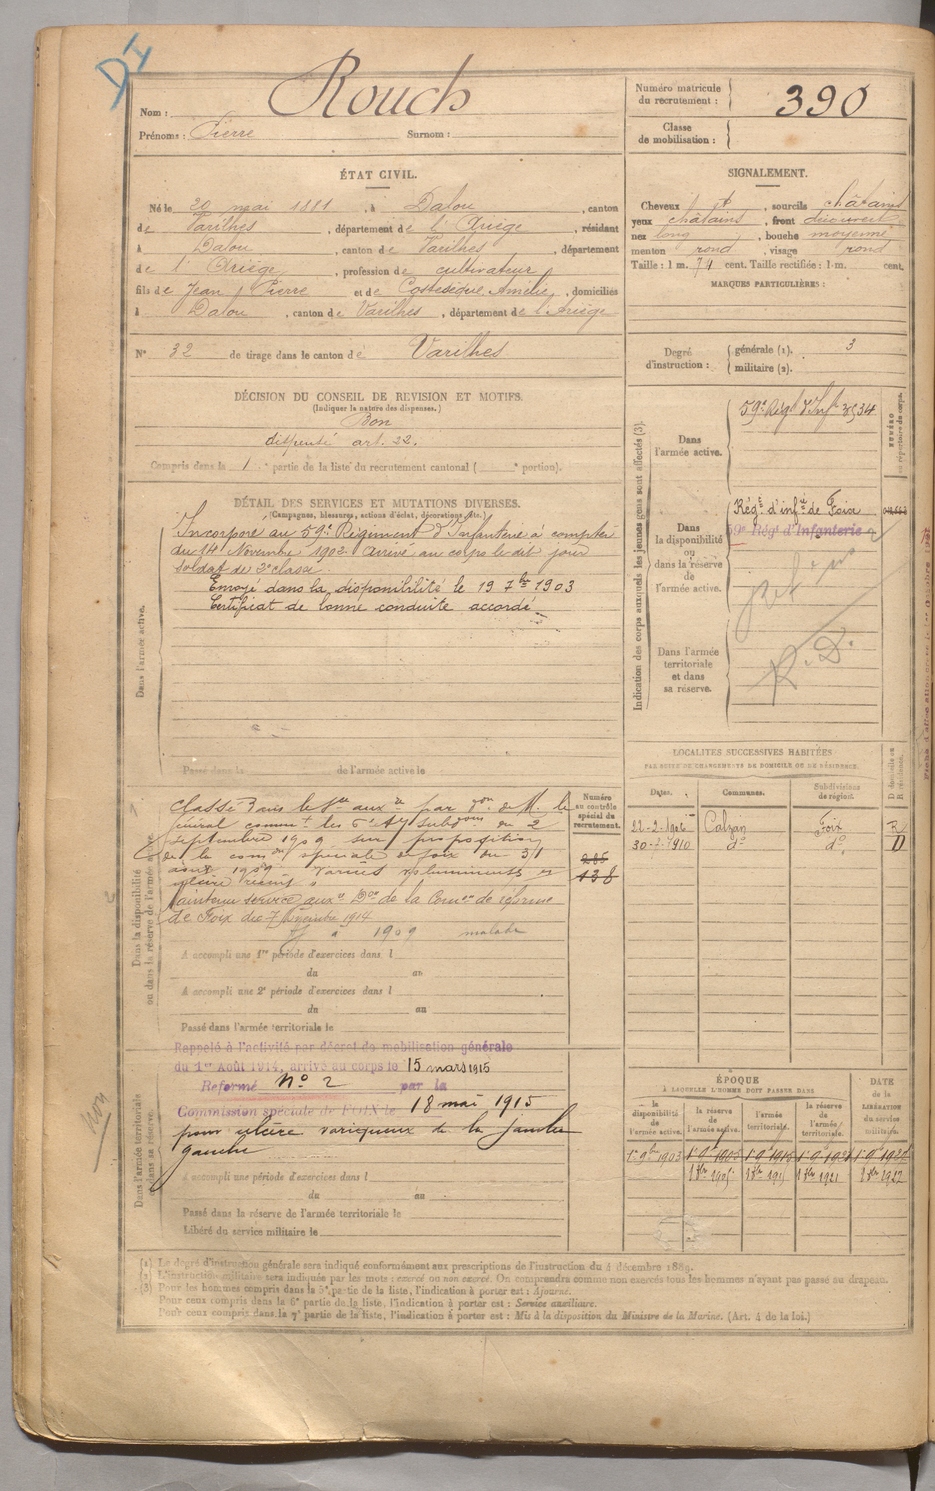 DI
Nom : Rouch
Prénoms : Pierre Surnom :
Numéro matricule du recrutement : 390
Classe de mobilisation :
ÉTAT CIVIL.
Né le 20 mai 1881, à Dalou, canton
de Varilhes, département de l'Ariège, résidant
à Dalou, canton de Varilhes, département
de l'Ariège, profession de cultivateur
fils de Jean Pierre et de Costesèque Amélie, domiciliés
à Dalou, canton de Varilhes, département de l'Ariège
N° 32 de tirage dans le canton de Varilhes
SIGNALEMENT.
Cheveux, sourcils châtains
yeux châtains, front découvert
nez long, bouche moyenne
menton rond, visage rond
Taille : 1 m. 74 cent. Taille rectifiée : 1 m. cent.
MARQUES PARTICULIÈRES :
Degré d'instruction : générale (1). 3
militaire (2).
DÉCISION DU CONSEIL DE REVISION ET MOTIFS.
(Indiquer la nature des dispenses.)
Bon
dispensé art. 22.
Compris dans la 1e partie de la liste du recrutement cantonal ( e portion).
DÉTAIL DES SERVICES ET MUTATIONS DIVERSES.
(Campagnes, blessures, actions d'éclat, décorations, etc.)
Dans l'armée active.
Incorporé au 59e Régiment d'Infanterie à compter
du 14 Novembre 1902 Arrivé au corps le dit jour
soldat de 2e classe.
Envoyé dans la disponibilité le 19 7bre 1903
Certificat de bonne conduite accordé
Passé dans la de l'armée active le
Indication des corps auxquels les jeunes gens sont affectés (3).
NUMÉRO au répertoire du corps.
Dans l'armée active.
59e Rég d'Infie 3534
Dans la disponibilité ou dans la réserve de l'armée active.
Régt d'infie de Foix
59e Régt d'Infanterie
Dans l'armée territoriale et dans sa réserve.
R. D.
LOCALITÉS SUCCESSIVES HABITÉES
PAR SUITE DE CHANGEMENTS DE DOMICILE OU DE RÉSIDENCE.
Dates. Communes. Subdivisions de région. D domicile ou R résidence.
22-2-1906 Calzan Foix R
30-7-1910 do do D
Dans la disponibilité ou dans la réserve de l'armée active.
Numéro au contrôle spécial du recrutement.
285
138
Classé dans le sce auxre par don de M. le
Général commt les subdons du 2
septembre 1909 sur proposition
de la comon spéciale de Foix du 31
août 1909 varices volumineuses et
ulcère récent
Maintenu service auxre Don de la Comon de réforme
de Foix du 7 Décembre 1914
1909 malade
A accompli une 1re période d'exercices dans l
du au
A accompli une 2e période d'exercices dans l
du au
Passé dans l'armée territoriale le
Dans l'armée territoriale et dans sa réserve.
non
Rappelé à l'activité par décret de mobilisation générale
du 1er Août 1914, arrivé au corps le 15 mars 1915
Reformé N° 2 par la
Commission spéciale de FOIX le 18 mai 1915
pour ulcère variqueux de la jambe
gauche
A accompli une période d'exercices dans l
du au
Passé dans la réserve de l'armée territoriale le
Libéré du service militaire le
ÉPOQUE
À LAQUELLE L'HOMME DOIT PASSER DANS
DATE de la LIBÉRATION du service militaire.
la disponibilité de l'armée active. la réserve de l'armée active. l'armée territoriale. la réserve de l'armée territoriale.
1er 9bre 1903 1er 9 1905 1er 9 1915 1er 9 1921 1er 9 1927
1 8bre 1905 1 8bre 1915 1 8bre 1921 1 8bre 1927
(1) Le degré d'instruction générale sera indiqué conformément aux prescriptions de l'instruction du 4 décembre 1889.
(2) L'instruction militaire sera indiquée par les mots : exercé ou non exercé. On comprendra comme non exercés tous les hommes n'ayant pas passé au drapeau.
(3) Pour les hommes compris dans la 5e partie de la liste, l'indication à porter est : Ajourné.
Pour ceux compris dans la 6e partie de la liste, l'indication à porter est : Service auxiliaire.
Pour ceux compris dans la 7e partie de la liste, l'indication à porter est : Mis à la disposition du Ministre de la Marine. (Art. 4 de la loi.)